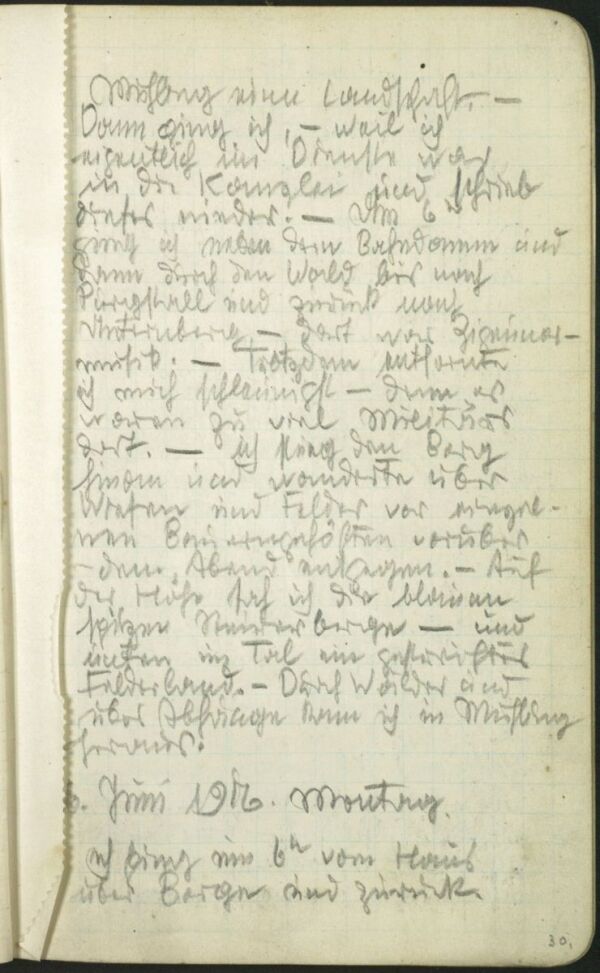 Mühling einen Landschaft. —
Dann ging ich, – weil ich
eigentlich im Dienste war
in die Kanzlei und schrieb
dieses nieder. — Um 6 h
ging ich neben dem Bahndamm und
dann durch den Wald bis nach
Purgstall und zurück nach
– dort war Zigeuner-
musik. — Trotzdem entfernte
ich mich schleunigst – denn es
waren zu viel Militärs
dort. — Ich stieg den Berg
hinan und wanderte über
Wiesen und Felder vor einzel-
nen Bauerngehöften vorüber
– dem Abend entgegen. – Auf
der Höhe sah ich die blauen
spitzen Berge — und
unten im Tal ein
Felderland. – Durch Wälder und
über Abhänge kam ich in Mühling
heraus.
Juni 1916. Montag.
Ich ging um 6 h vom Haus
über Berge und zurück.
30.